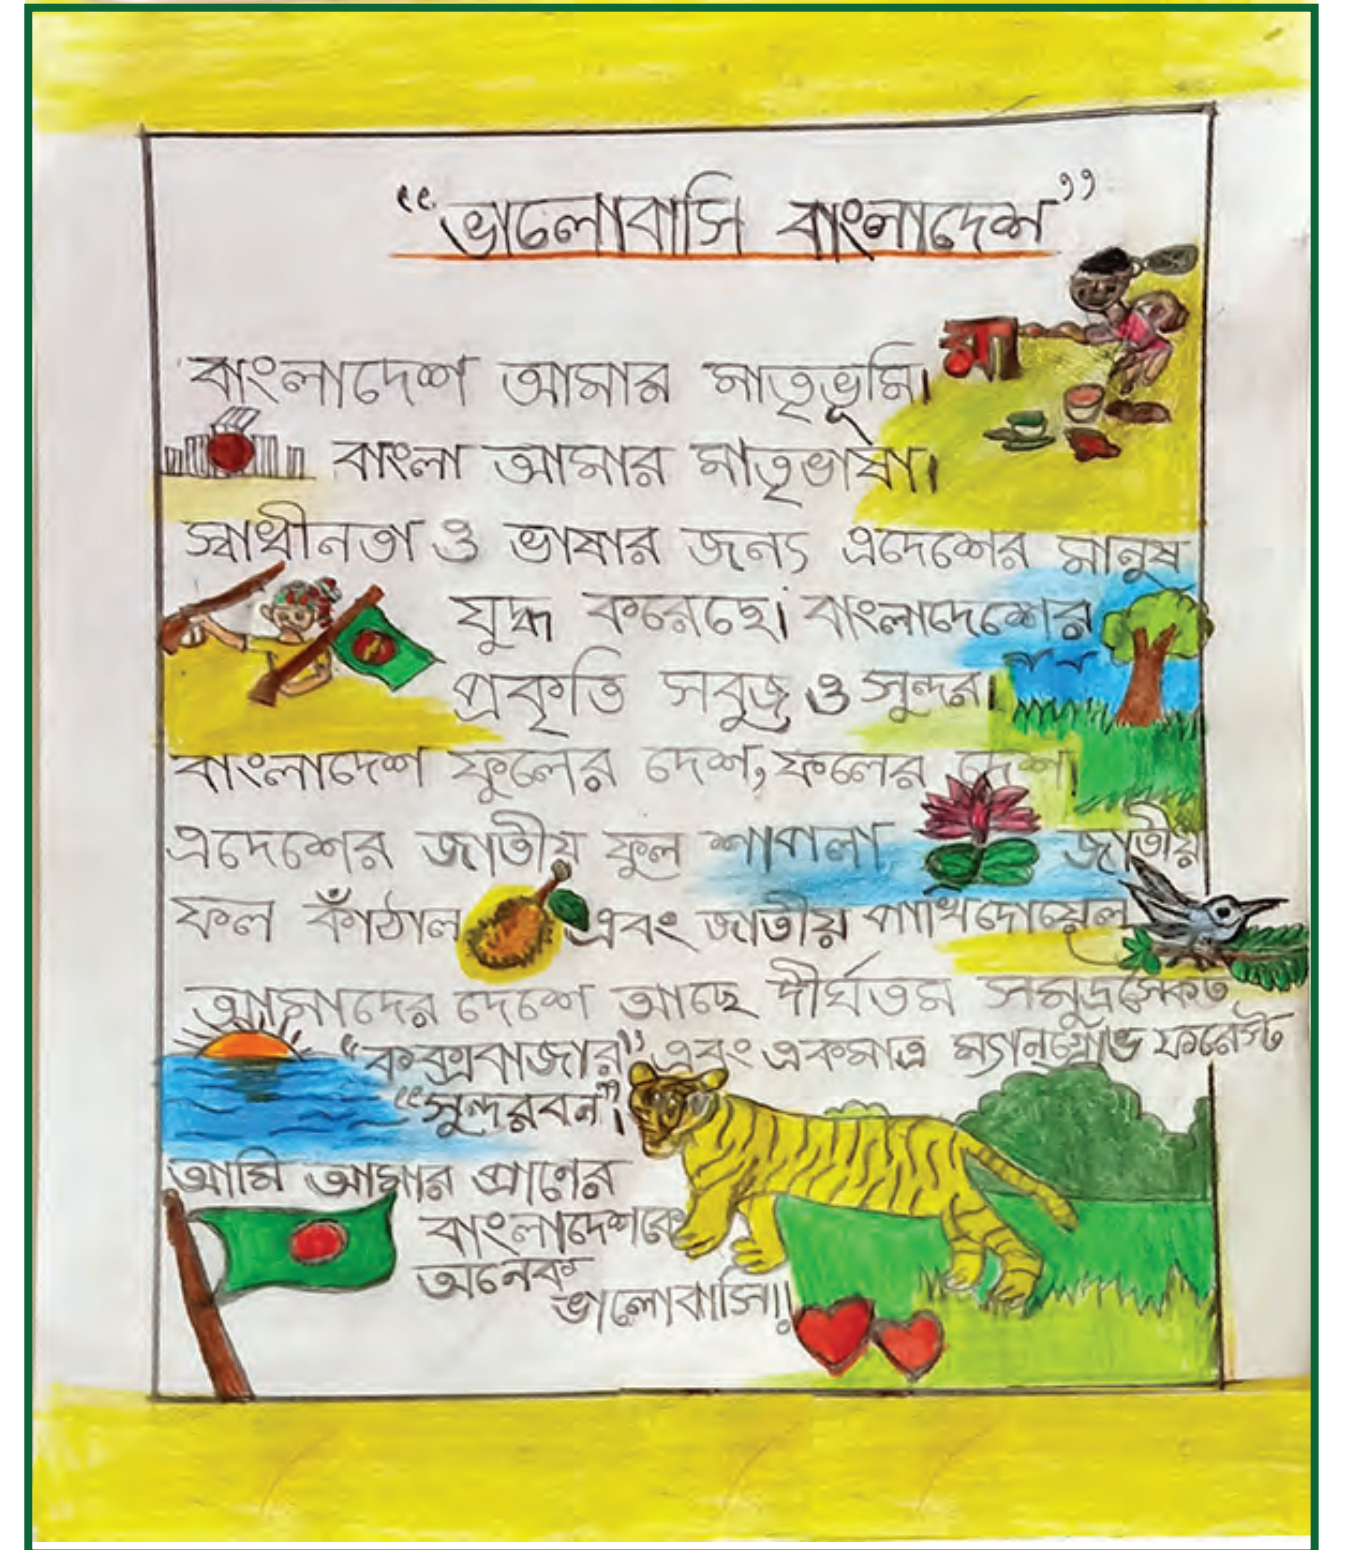 “ভালোবাসি বাংলাদেশ”
মা
বাংলাদেশ আমার মাতৃভূমি।
বাংলা আমার মাতৃভাষা।
স্বাধীনতা ও ভাষার জন্য এদেশের মানুষ
যুদ্ধ করেছে। বাংলাদেশের
প্রকৃতি সবুজ ও সুন্দর।
বাংলাদেশ ফুলের দেশ, ফলের দেশ।
এদেশের জাতীয় ফুল শাপলা, জাতীয়
ফল কাঁঠাল এবং জাতীয় পাখি দোয়েল
আমাদের দেশে আছে দীর্ঘতম সমুদ্রসৈকত
“কক্সবাজার” এবং একমাত্র ম্যানগ্রোভ ফরেস্ট
“সুন্দরবন”।
আমি আমার প্রাণের
বাংলাদেশকে
অনেক
ভালোবাসি।।